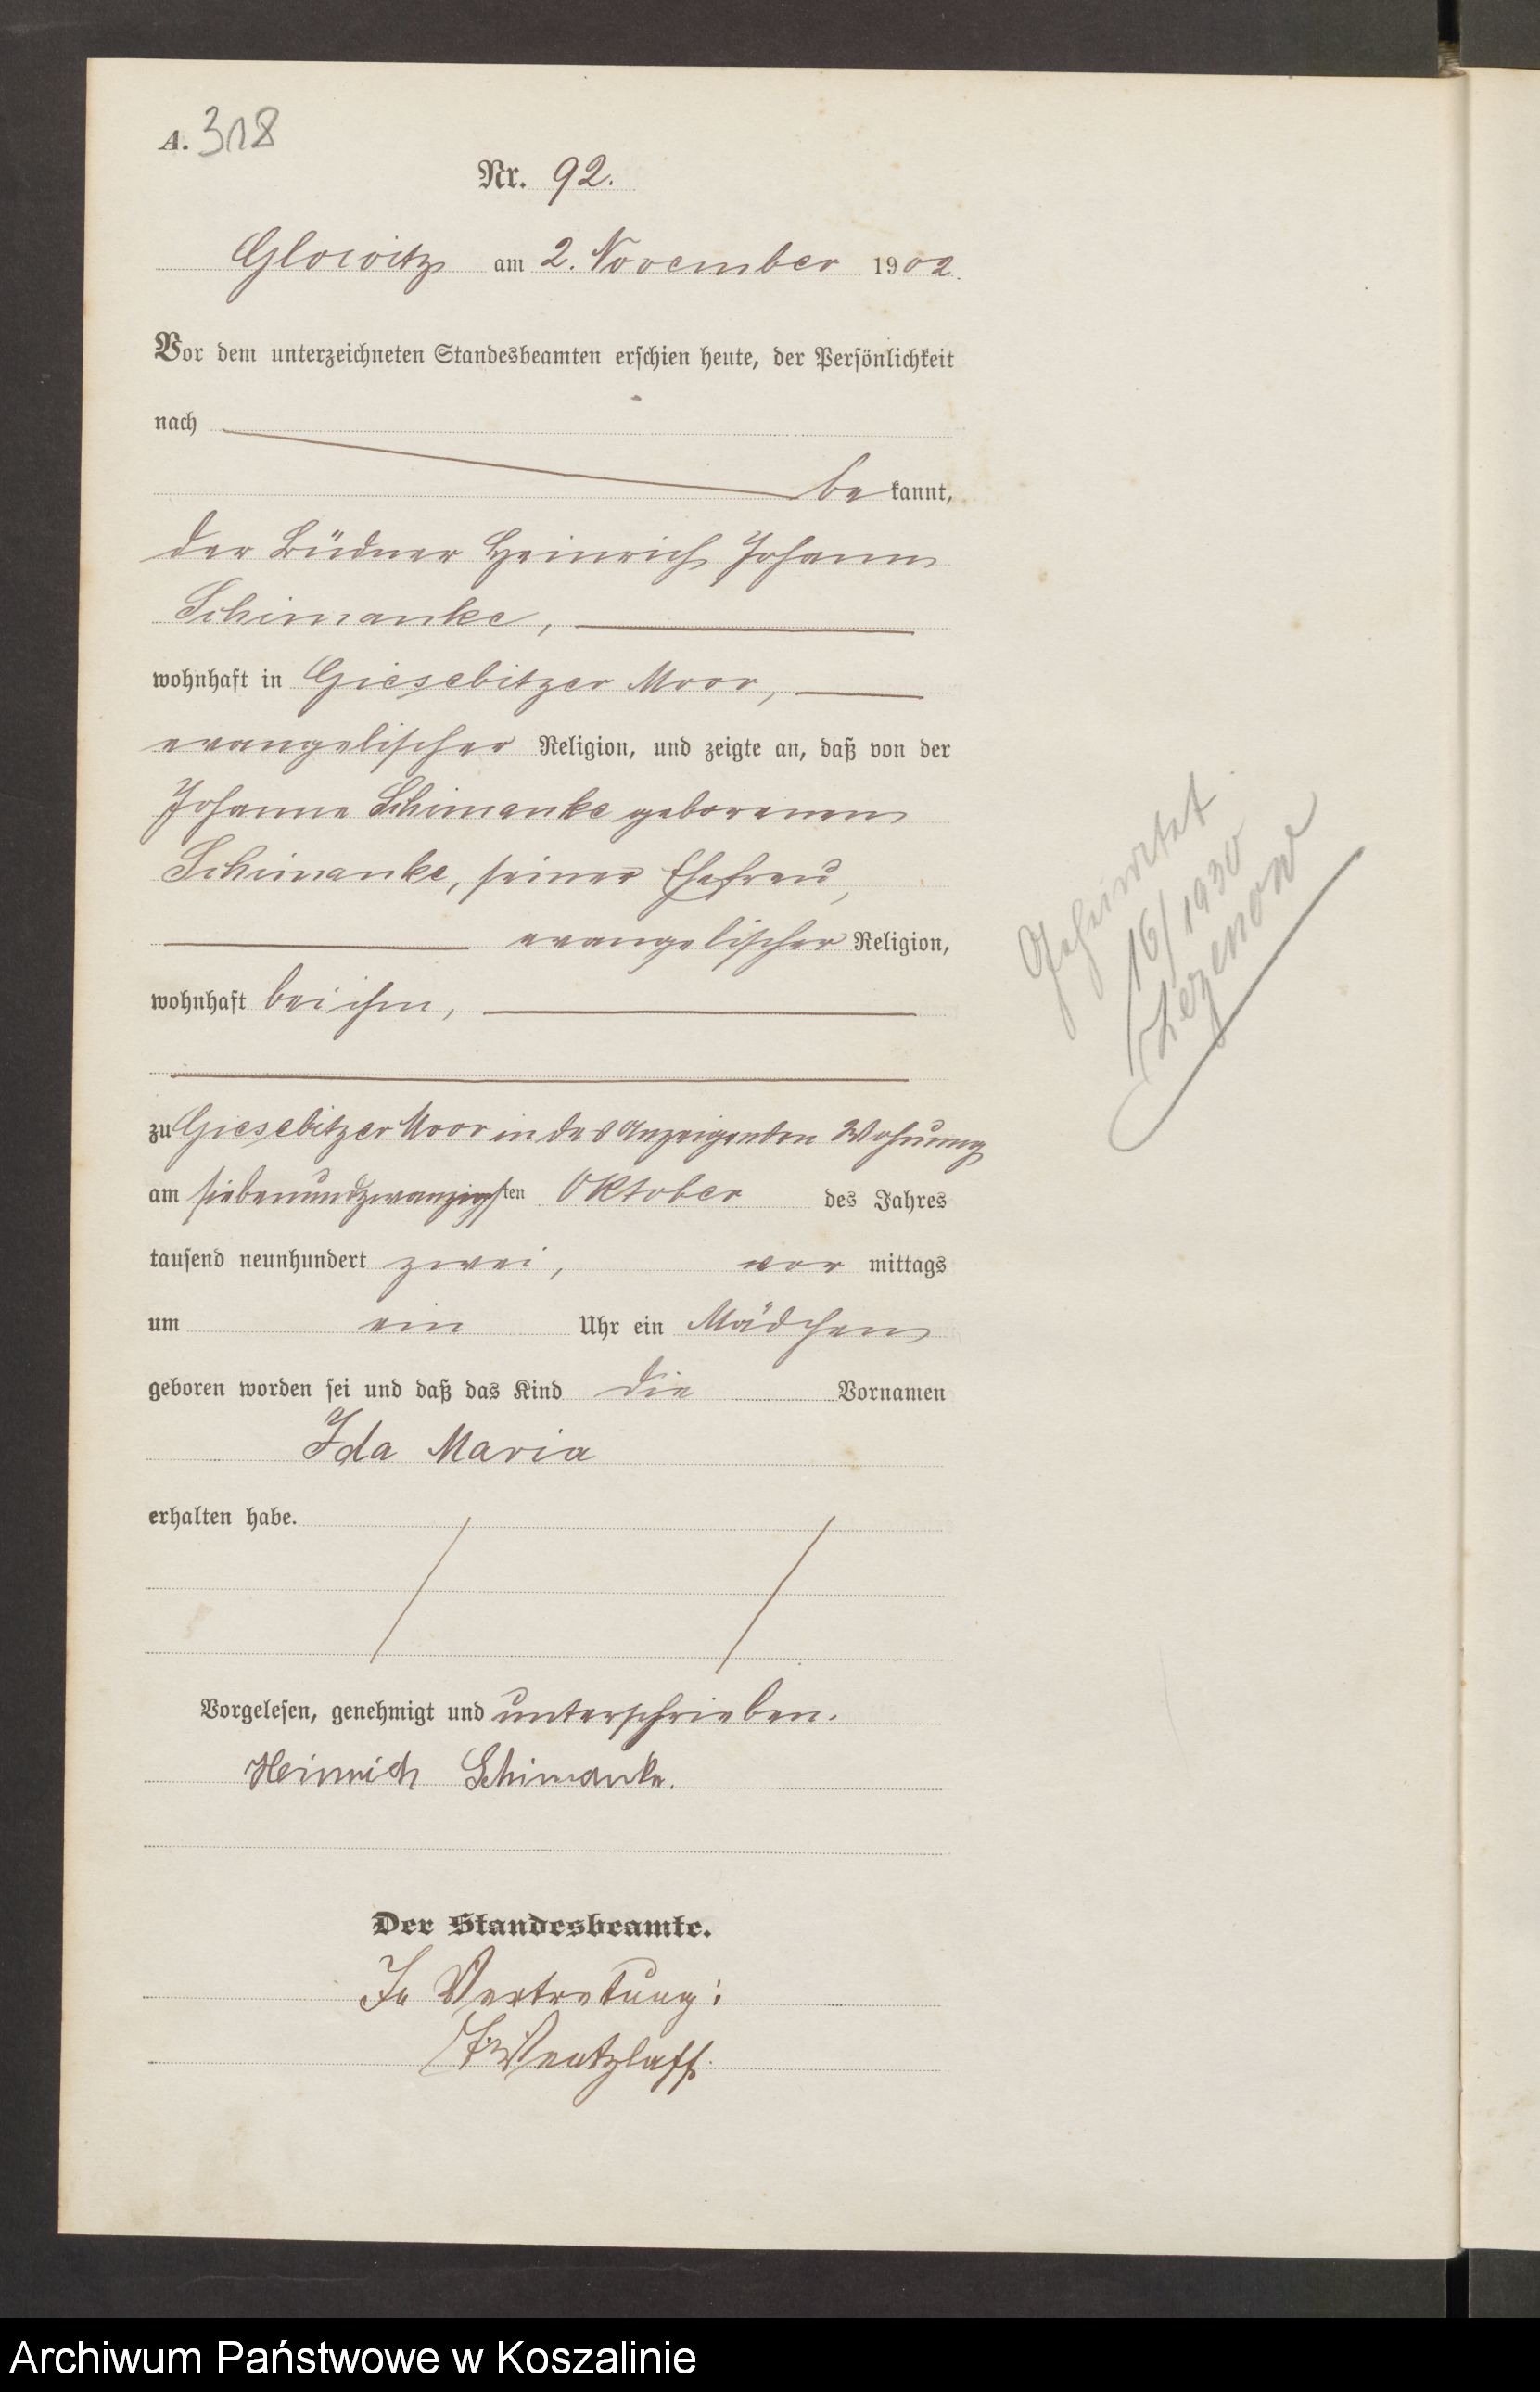 A. 318
Nr. 92.
Glowitz am 2. November 1902.
Vor dem unterzeichneten Standesbeamten erschien heute, der Persönlichkeit
nach
be kannt,
der Büdner Heinrich Johann
Schimanke,
wohnhaft in Giesebitzer Moor,
evangelischer Religion, und zeigte an, daß von der
Johanne Schimanke geborenen
Schimanke, seiner Ehefrau,
evangelischer Religion,
wohnhaft bei ihm,
zu Giesebitzer Moor in des Anzeigenden Wohnung
am siebenundzwanzigsten Oktober des Jahres
tausend neunhundert zwei, vor mittags
um ein Uhr ein Mädchen
geboren worden sei und daß das Kind die Vornamen
Ida Maria
erhalten habe.
Vorgelesen, genehmigt und unterschrieben.
Heinrich Schimanke.
Der Standesbeamte.
In Vertretung:
Wentzlaff.
Geheiratet
16/1930
Zezenow
Archiwum Państwowe w Koszalinie